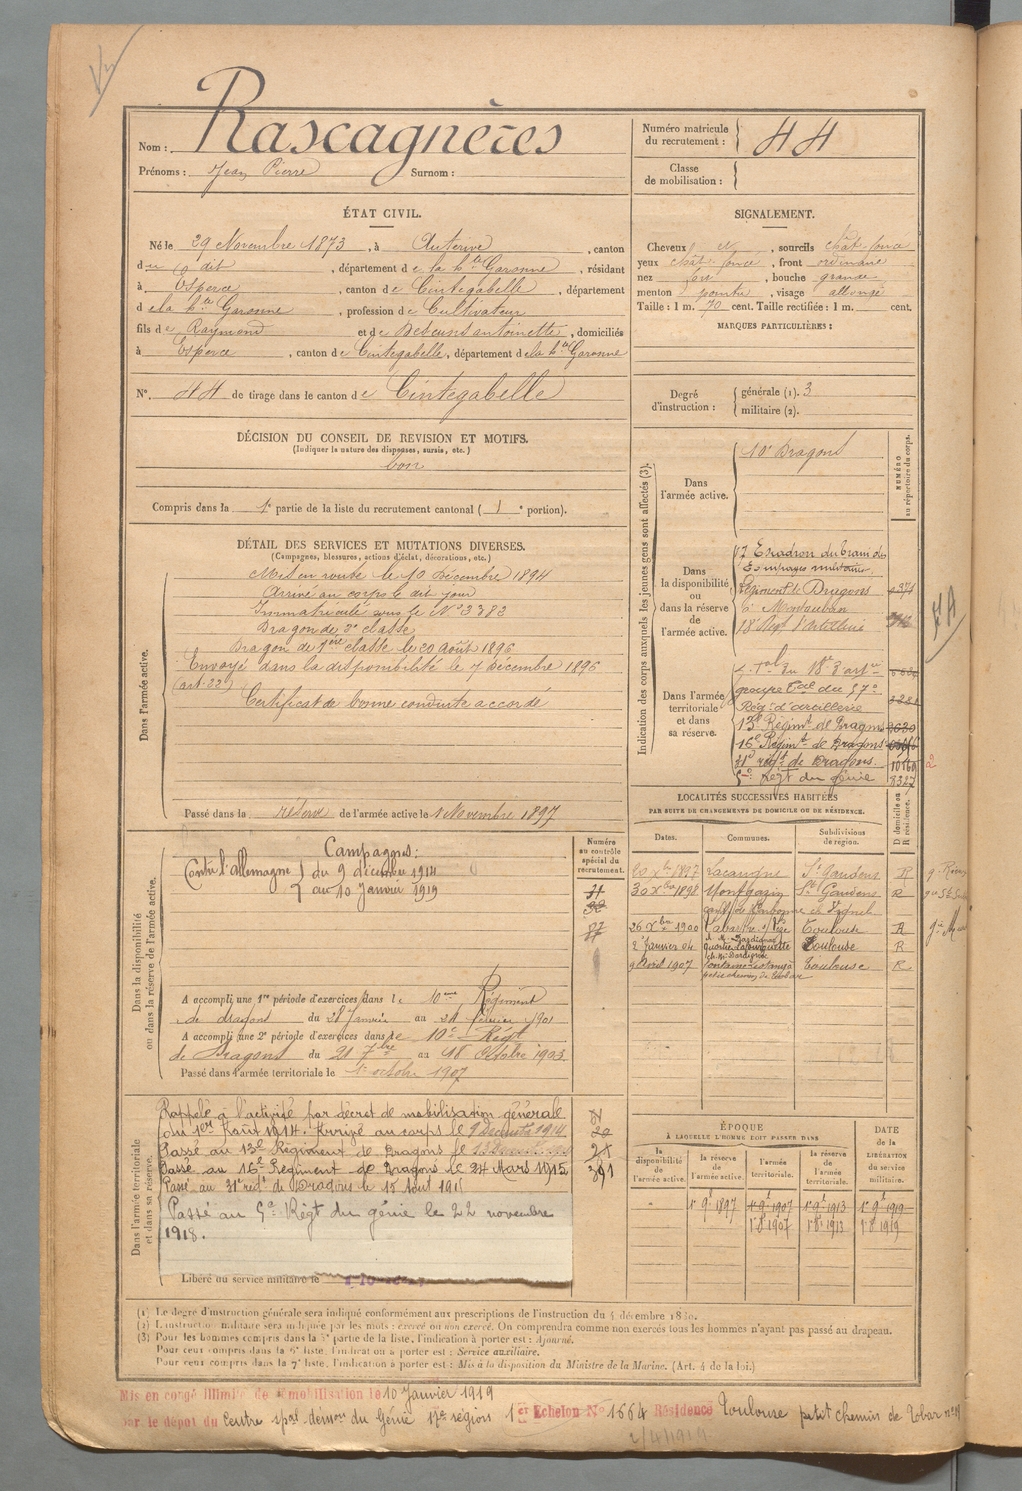 Vu
Nom : Rascagnères
Prénoms : Jean Pierre Surnom :
Numéro matricule du recrutement : 44
Classe de mobilisation :
ÉTAT CIVIL.
Né le 29 Novembre 1873, à Auterive, canton
du dit, département de la hte Garonne, résidant
à Esperce, canton de Cintegabelle, département
de la hte Garonne, profession de Cultivateur
fils de Raymond et de Descuns antoinette, domiciliés
à Esperce, canton de Cintegabelle, département de la hte Garonne
N°. 44 de tirage dans le canton de Cintegabelle
SIGNALEMENT.
Cheveux et, sourcils chât-foncé
yeux chât-foncé, front ordinaire
nez, bouche grande
menton pointu, visage allongé
Taille : 1 m. 70 cent. Taille rectifiée : 1 m. cent.
MARQUES PARTICULIÈRES :
Degré d'instruction : générale (1). 3
militaire (2).
DÉCISION DU CONSEIL DE REVISION ET MOTIFS.
(Indiquer la nature des dispenses, sursis, etc.)
bon
Compris dans la 1e partie de la liste du recrutement cantonal ( 1 e portion).
DÉTAIL DES SERVICES ET MUTATIONS DIVERSES.
(Campagnes, blessures, actions d'éclat, décorations, etc.)
Dans l'armée active.
Mis en route le 10 Décembre 1894
Arrivé au corps le dit jour
Immatriculé sous le N° 3383
Dragon de 2e classe
Dragon de 1ère classe le 20 août 1896
Envoyé dans la disponibilité le 7 Décembre 1896
(art. 22)
Certificat de bonne conduite accordé
Passé dans la réserve de l'armée active le 1 Novembre 1897
Indication des corps auxquels les jeunes gens sont affectés (3).
NUMÉRO au répertoire du corps.
Dans l'armée active.
10e Dragons
Dans la disponibilité ou dans la réserve de l'armée active.
17 Escadron du train des
Equipages militaires
Régiment de Dragons 371
à Montauban
18e Regt d'artillerie
Dans l'armée territoriale et dans sa réserve.
groupe tal du 57e
Rég. d'artillerie
13e Régimt de Dragons 2680
16e Régimt de Dragons
31e régt de Dragons
5e Régt du génie 8327
LOCALITÉS SUCCESSIVES HABITÉES
PAR SUITE DE CHANGEMENTS DE DOMICILE OU DE RÉSIDENCE.
Dates. Communes. Subdivisions de région. D domicile ou R résidence.
20 Xbre 1897 Lacaugne St Gaudens R
30 Xbre 1898 Montgazin St Gaudens R
26 Xbre 1900 Toulouse R
2 Janvier 04 Toulouse R
9 Avril 1907 Toulouse R
Dans la disponibilité ou dans la réserve de l'armée active.
Campagnes :
Contre l'Allemagne du 9 décembre 1914
au 10 Janvier 1919
Numéro au contrôle spécial du recrutement.
A accompli une 1re période d'exercices dans le 10eme Régiment
de dragons du 28 Janvier au 24 février 1901
A accompli une 2e période d'exercices dans le 10e Régt
de Dragons du 21 7bre au 18 Octobre 1903
Passé dans l'armée territoriale le 1er octobre 1907
Dans l'armée territoriale et dans sa réserve.
Rappelé à l'activité par décret de mobilisation générale
du 1er Août 1914. Arrivé au corps le 9 Décembre 1914
Passé au 13e Régiment de Dragons le
Passé au 16e Régiment de Dragons le 24 Mars 1915
Passé au 31e régt de Dragons le 15 Aout 191
Passé au 5e Régt du génie le 22 novembre
1918.
Libéré du service militaire le
391
ÉPOQUE
À LAQUELLE L'HOMME DOIT PASSER DANS
la disponibilité de l'armée active. la réserve de l'armée active. l'armée territoriale. la réserve de l'armée territoriale.
DATE de la LIBÉRATION du service militaire.
1er 9bre 1897 1er 9bre 1907 1er 9bre 1913 1er 9bre 1919
1er 8bre 1907 1er 8bre 1913 1er 8bre 1919
(1) Le degré d'instruction générale sera indiqué conformément aux prescriptions de l'instruction du 4 décembre 1889.
(2) L'instruction militaire sera indiquée par les mots : exercé ou non exercé. On comprendra comme non exercés tous les hommes n'ayant pas passé au drapeau.
(3) Pour les hommes compris dans la 5e partie de la liste, l'indication à porter est : Ajourné.
Pour ceux compris dans la 6e liste, l'indication à porter est : Service auxiliaire.
Pour ceux compris dans la 7e liste, l'indication à porter est : Mis à la disposition du Ministre de la Marine. (Art. 4 de la loi.)
Mis en congé illimité de démobilisation le 10 Janvier 1919
par le dépôt du Centre spal démon du Génie 17e région 1er Echelon N° 1664 Résidence Toulouse petit chemin de Tobar
2/4/1919